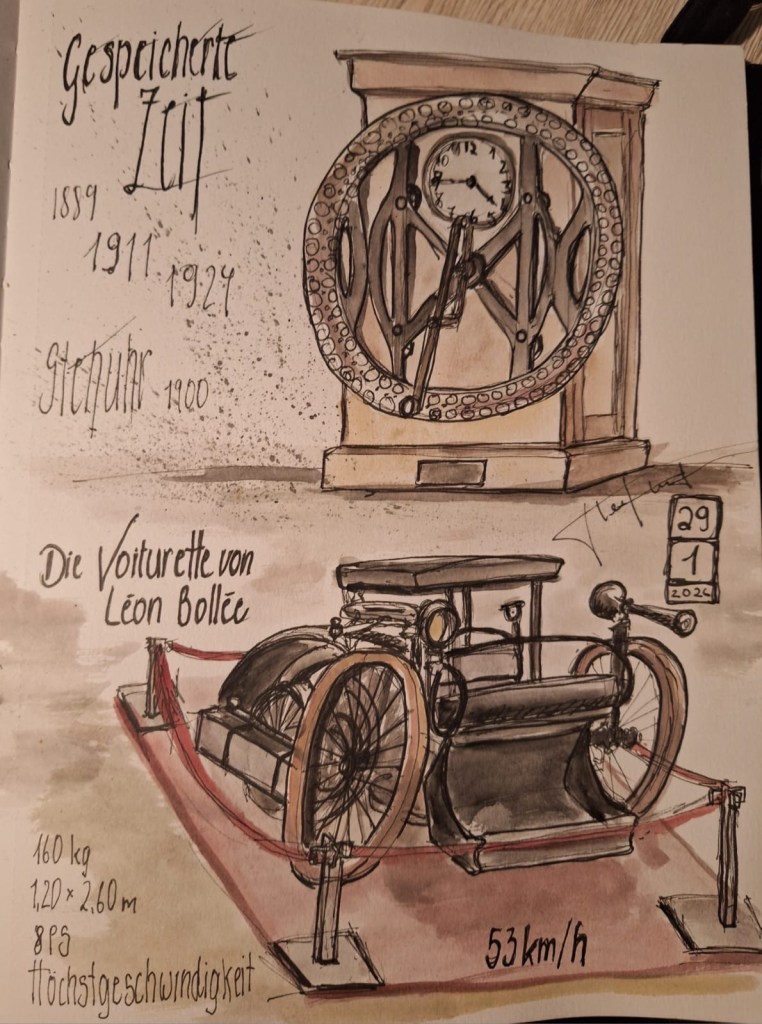 Gespeicherte
Zeit
1889
1911
1924
Stechuhr 1900
29
1
2026
Die Voiturette von
Léon Bollée
160 kg
1,20 × 2,60 m
8 PS
Höchstgeschwindigkeit
53 km/h